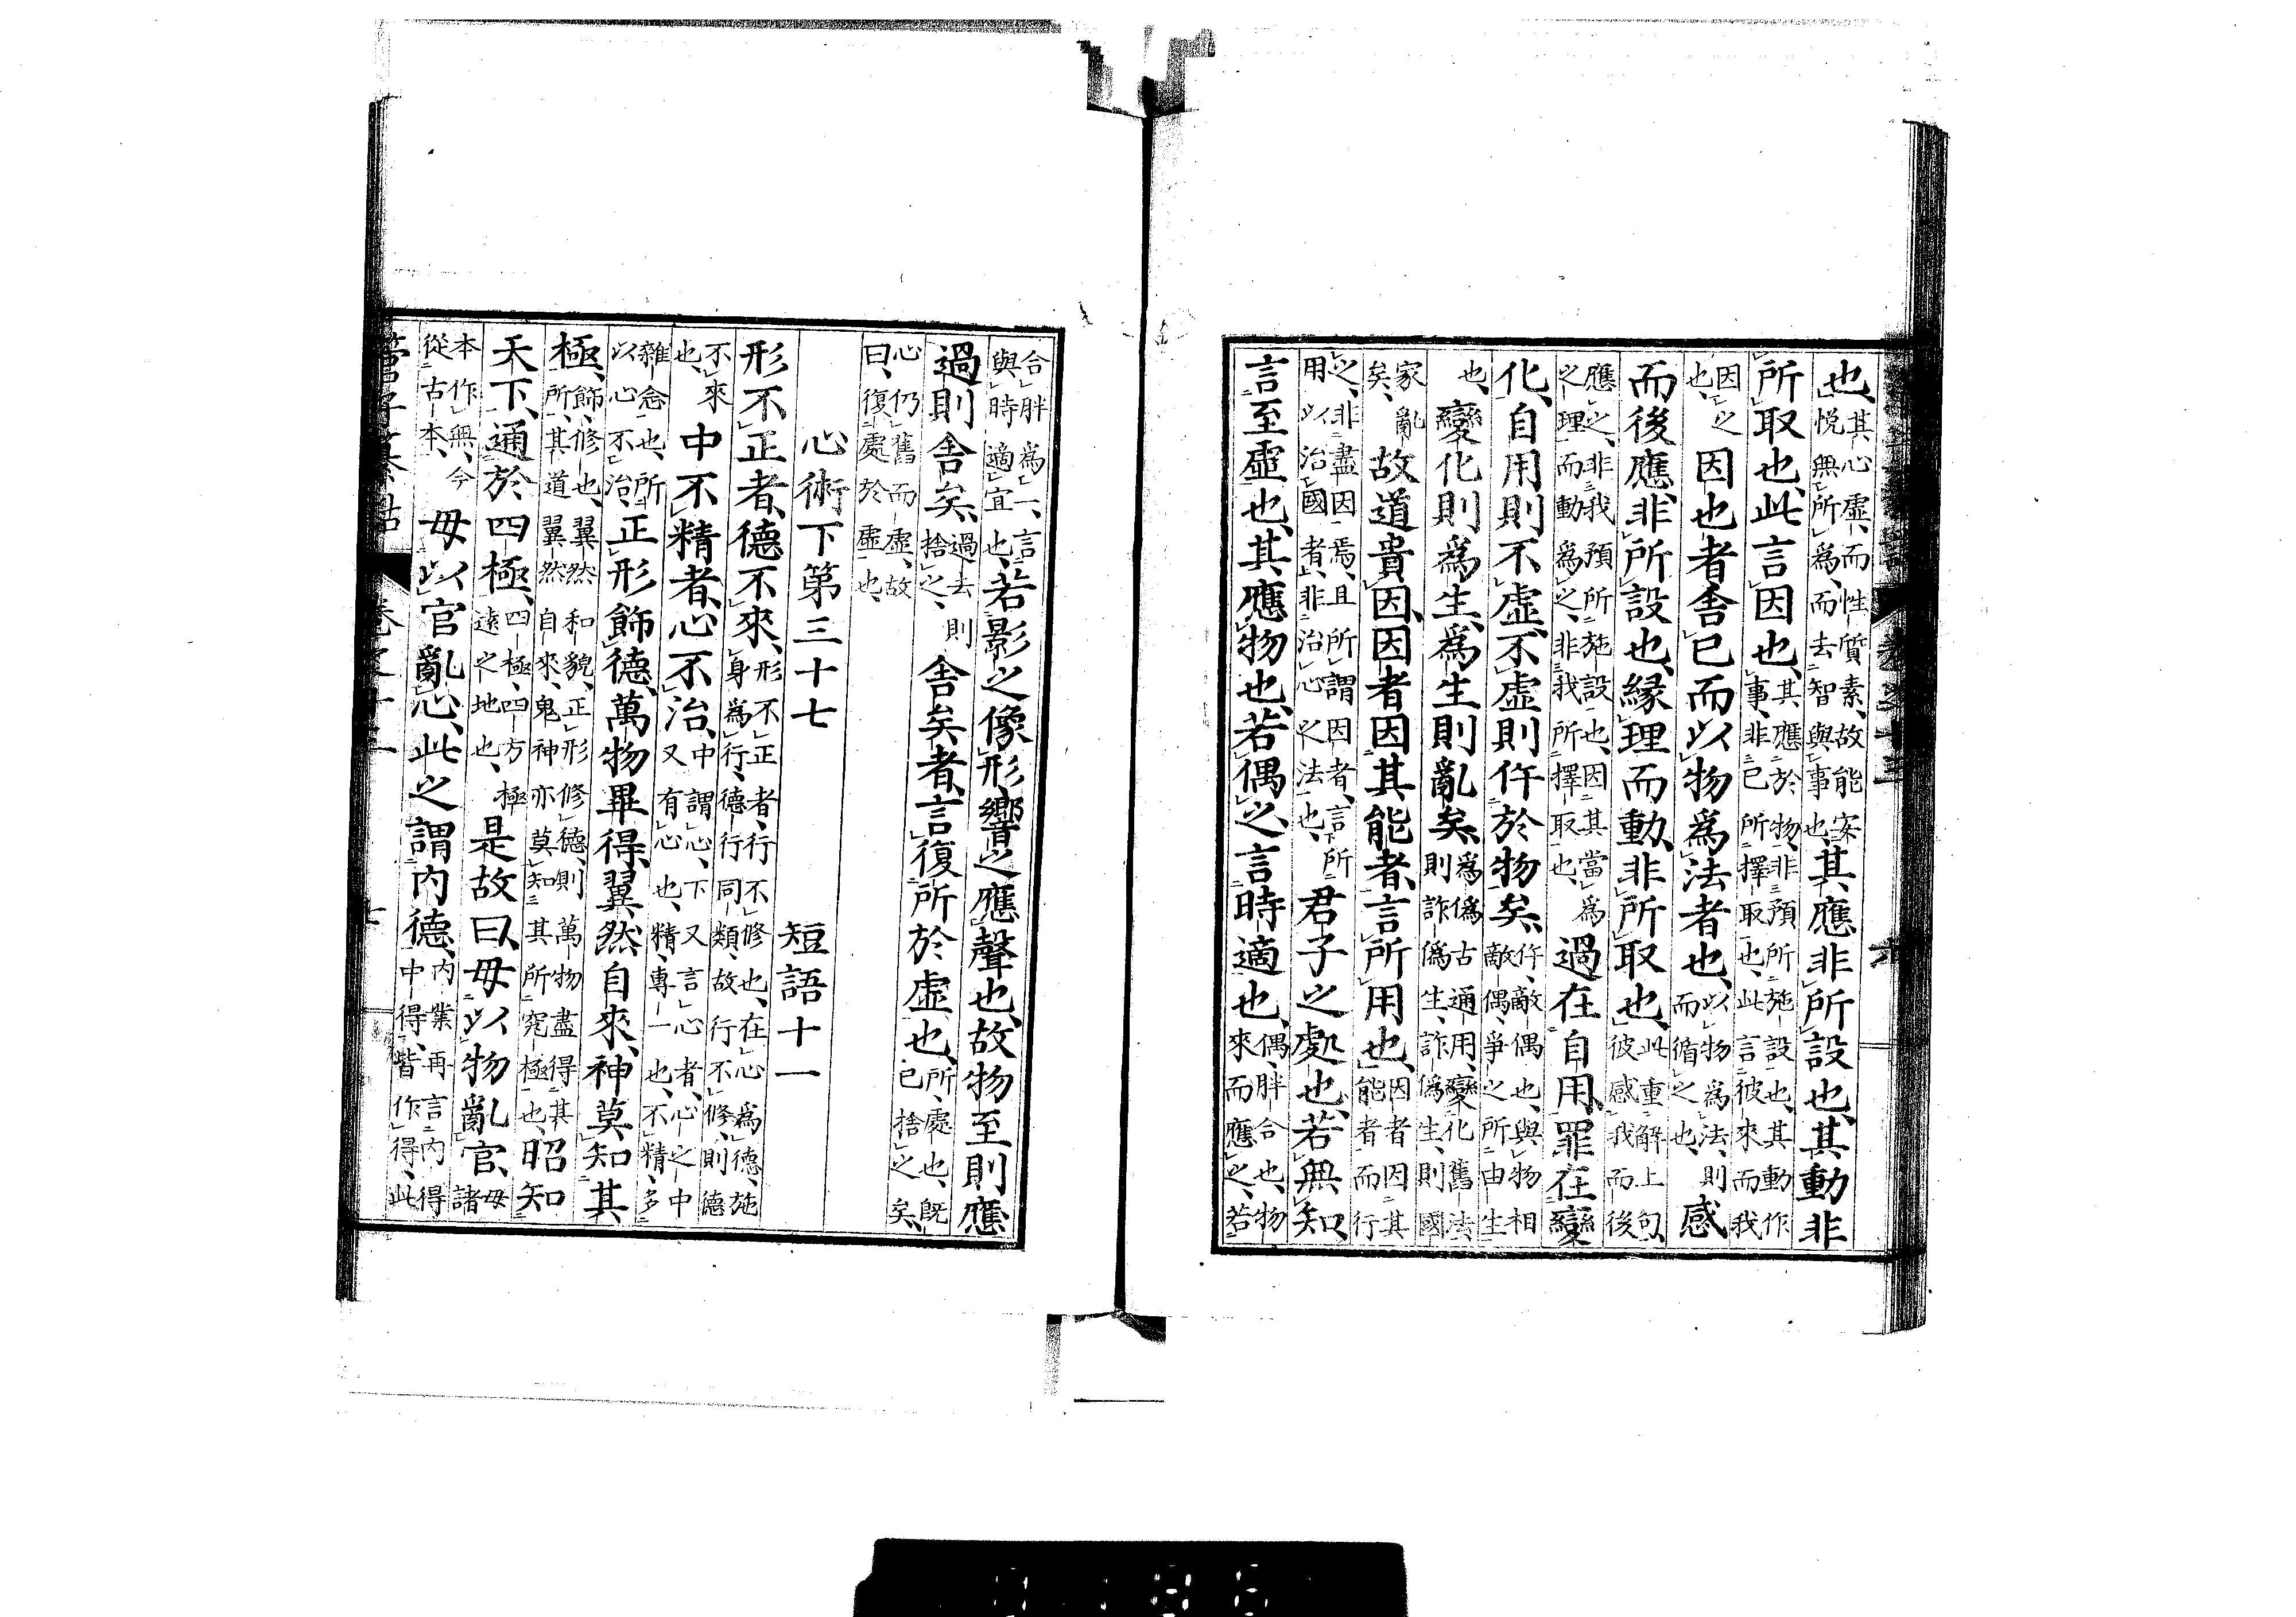 也、其心虛、而性質素、故能安悦無所爲、而去智與事也、其應非所設也、其動非
所取也、此言因也、其應於物、非預所施設也、其動作事、非己所擇取也、此言彼來而我
因之也、因也者、舍己而以物爲法者也、以物爲法、則而循之也、感
而後應、非所設也、緣理而動、非所取也、此重解上句、彼感我而後
應之、非我預所施設也、因其當爲之理而動爲之、非我所擇取也、過在自用、罪在變
化、自用則不虛、不虛則仵於物矣、仵、敵偶也、與物相敵偶、爭之所由生
也、變化則爲生、爲生則亂矣、爲僞古通用、變化舊法則詐僞生、詐僞生、則國
家亂矣、故道貴因、因者、因其能者、言所用也、因者因其能者而行
之、非盡因焉、且所謂因者、言下所用以治國者上、非治心之法也、君子之處也、若無知、
言至虛也、其應物也、若偶之、言時適也、偶、胖合也、物來而應之、若
合胖爲一、言與時適宜也、若影之像形、響之應聲也、故物至則應
過則舍矣、過去則捨之、舍矣者、言復所於虛也、所、處也、既已捨之矣、
心仍舊而虛、故曰、復處於虛也、
心術下第三十七　短語十一
形不正者、德不來、形不正者、行不修也、在心爲德、施身爲行、德行同類、故行不修、則德
不來也、中不精者、心不治、中謂心、下又言心者、心之中又有心也、精、專一也、不精、多
雜念也、所以心不治、正形飾德、萬物畢得、翼然自來、神莫知其
極、飾、修也、翼然和貌、正形修德、則萬物盡得其所、其道翼然自來、鬼神亦莫知其所究極也、昭知
天下、通於四極、四極、四方極遠之地也、是故曰、毋以物亂官、毋諸
本作無、今從古本、毋以官亂心、此之謂內德、內業再言內得中得、皆作得、此
管子纂詁　卷之十三